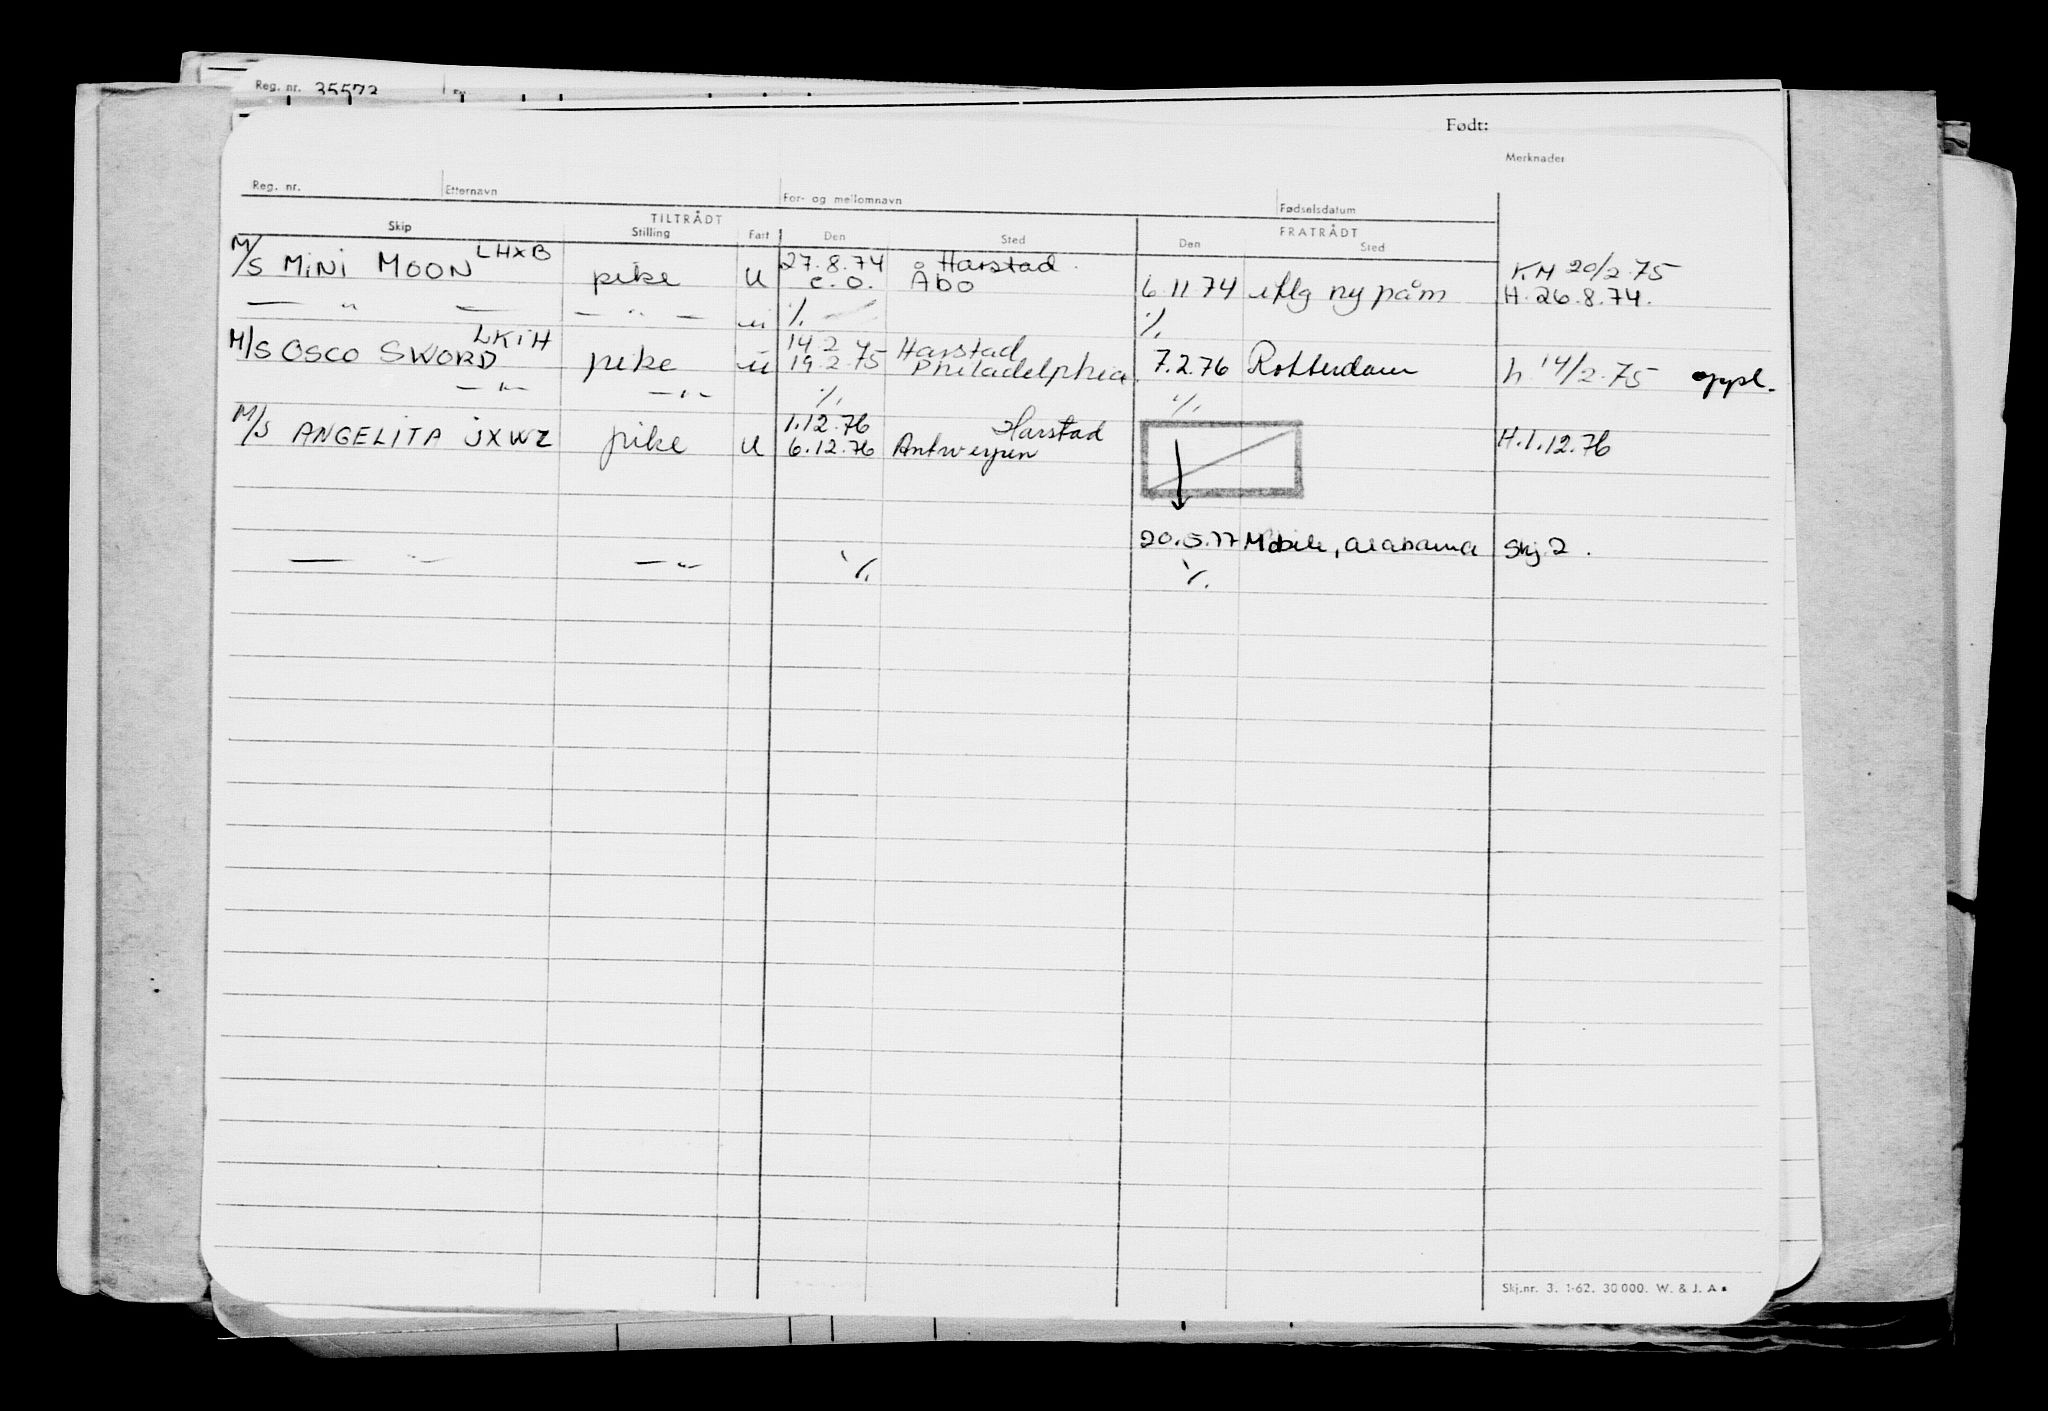 Reg. nr. 35573
Født:
Merknader
Reg. nr. Etternavn For- og mellomnavn Fødselsdatum
TILTRÅDT FRATRÅDT
Skip Stilling Fart Den Sted Den Sted
M/S MINI MOON LHXB pike u 27.8.74 Harstad KM 20/2.75
c.o. Åbo 6.11.74 iflg ny påm H. 26.8.74.
— " — — " — u ·/. ·/.
M/S OSCO SWORD LKIH pike u 14.2.75 Harstad
19.2.75 Philadelphia 7.2.76 Rotterdam h. 14/2.75 oppl.
— " — — " — ·/. ·/.
M/S ANGELITA JXWZ pike u 1.12.76 Harstad
6.12.76 Antwerpen H.1.12.76
20.5.77 Mobile, Alabama Skj.2.
— " — — " — ·/. ·/.
Skj.nr. 3. 1-62. 30000. W. & J. A.